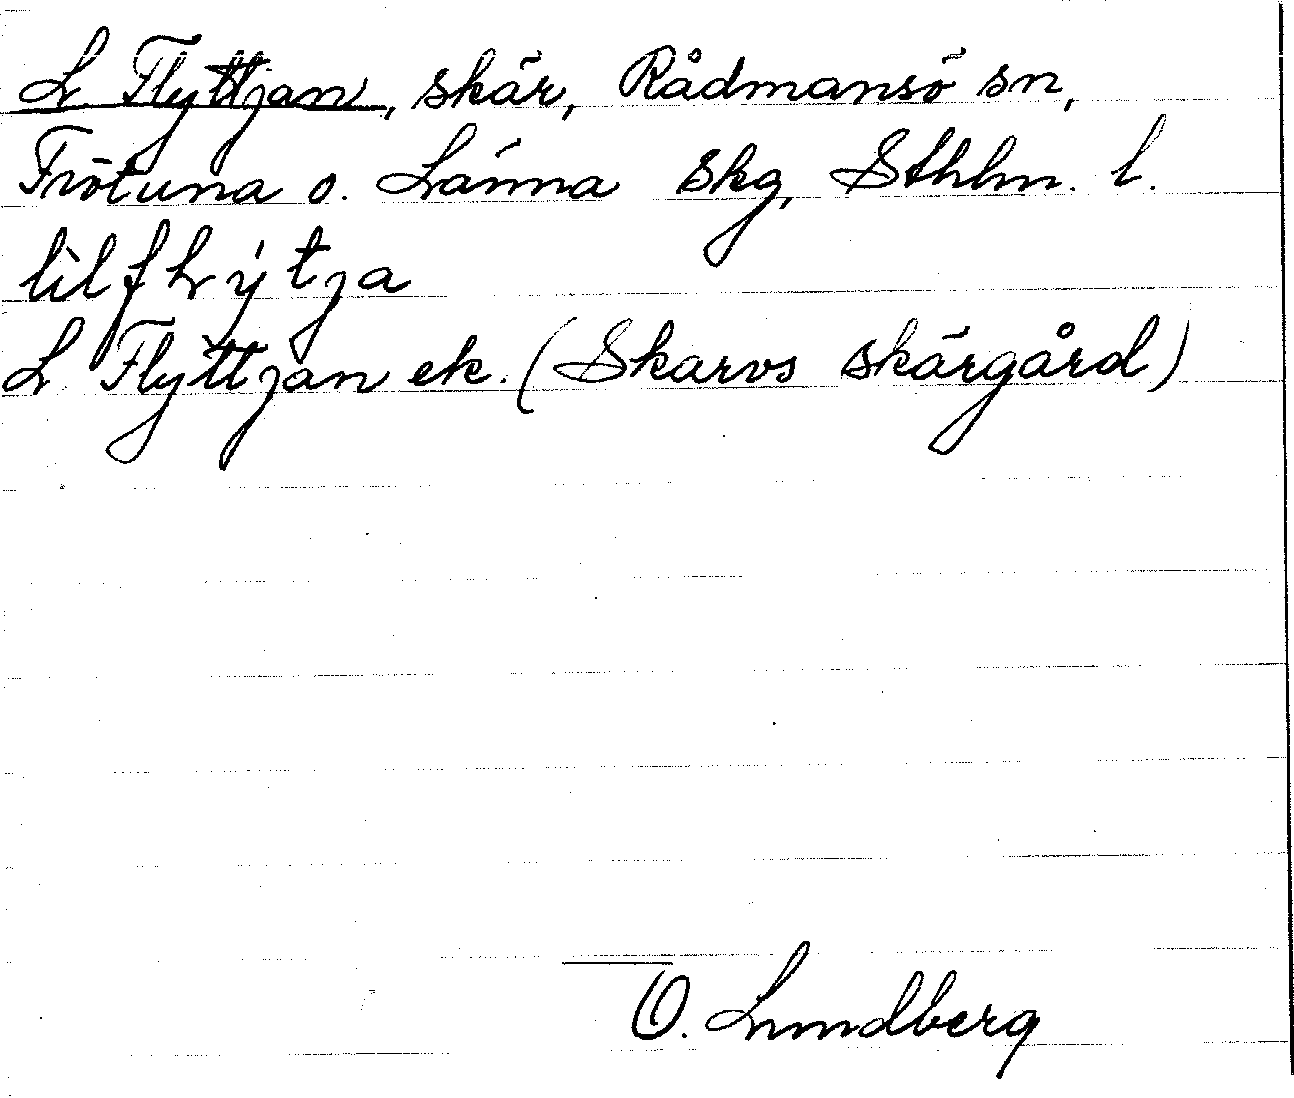 L. Flyttjan, skär, Rådmansö sn,
Frötuna o. Länna skg, Sthlm. l.
L Flyttjan ek. (Skarvs skärgård)
O. Lundberg